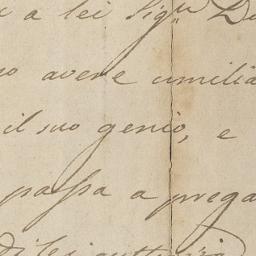 a lei Sig.ra D
avere umilia
il suo genio, e
passa a prega
di lei